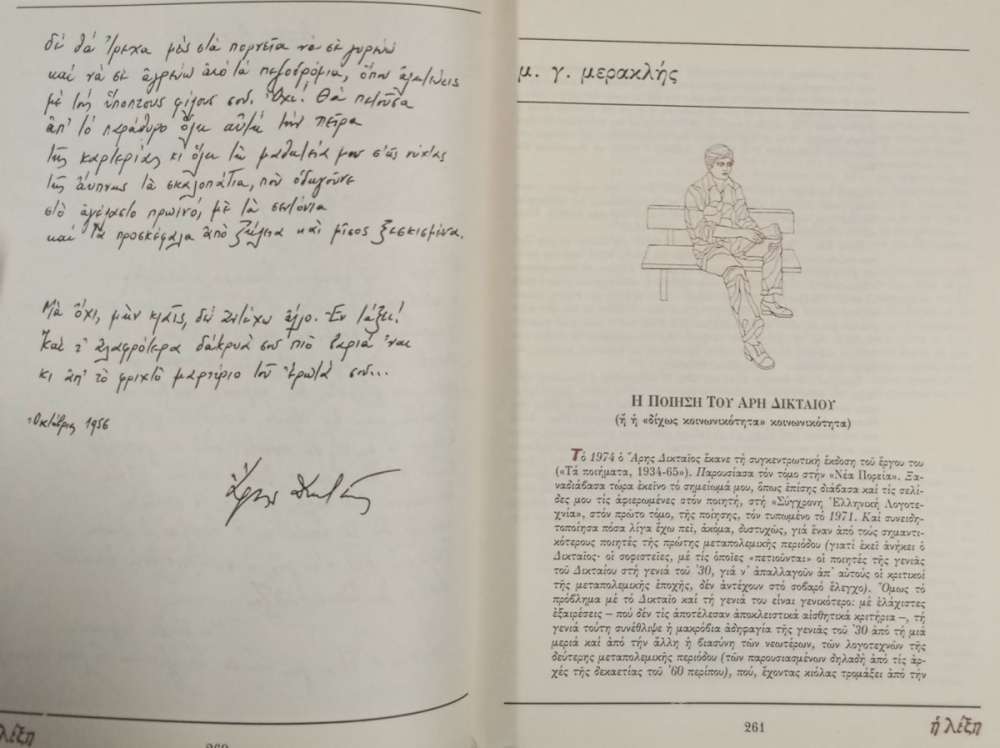 δέ θά ἔτρεχα μὲς στὰ πορνεῖα νὰ σὲ γυρεύω
καὶ νὰ σὲ ἀγρεύω ἀπὸ τὰ πεζοδρόμια, ὅπου
μὲ τοὺς ὕποπτους φίλους σου. Ὄχι! Θὰ πετοῦσα
ἀπ' τὸ παράθυρο ὅλη αὐτὴ τὴν πέτρα
τῆς καρτερίας κι ὅλη τὴ μαθητεία μου στῆς νύχτας
τῆς ἄυπνης τὰ σκαλοπάτια, ποὺ ὁδηγοῦνε
στὸ ἀγέλαστο πρωινό, μὲ τὰ σεντόνια
καὶ τὰ προσκέφαλα ἀπὸ ζήλεια καὶ μῖσος ξεσκισμένα.
Μὰ ὄχι, μὴν κλαῖς, δὲν ζητάω ἄλλο. Ἐν τάξει!
Καὶ τ' ἐλαφρότερα δάκρυά σου πιὸ βαριὰ 'ναι
κι ἀπ' τὸ φριχτὸ μαρτύριο τοῦ ἔρωτά σου...
Ὀκτώβρης 1956
Ἄρης Δικταῖος
ἡ λέξη
260
μ. γ. μερακλής
Η ΠΟΙΗΣΗ ΤΟΥ ΑΡΗ ΔΙΚΤΑΙΟΥ
(ἤ ἡ «δίχως κοινωνικότητα» κοινωνικότητα)
Τὸ 1974 ὁ Ἄρης Δικταῖος ἔκανε τὴ συγκεντρωτικὴ ἔκδοση τοῦ ἔργου του
(«Τὰ ποιήματα, 1934-65»). Παρουσίασα τὸν τόμο στὴν «Νέα Πορεία». Ξα-
ναδιάβασα τώρα ἐκεῖνο τὸ σημείωμά μου, ὅπως ἐπίσης διάβασα καὶ τὶς σελί-
δες μου τὶς ἀφιερωμένες στὸν ποιητή, στὴ «Σύγχρονη Ἑλληνικὴ Λογοτε-
χνία», στὸν πρῶτο τόμο, τῆς ποίησης, τὸν τυπωμένο τὸ 1971. Καὶ συνειδη-
τοποίησα πόσα λίγα ἔχω πεῖ, ἀκόμα, δυστυχῶς, γιὰ ἕναν ἀπὸ τοὺς σημαντι-
κότερους ποιητὲς τῆς πρώτης μεταπολεμικῆς περιόδου (γιατὶ ἐκεῖ ἀνήκει ὁ
Δικταῖος· οἱ σοφιστεῖες, μὲ τὶς ὁποῖες «πετιοῦνται» οἱ ποιητὲς τῆς γενιᾶς
τοῦ Δικταίου στὴ γενιὰ τοῦ '30, γιὰ ν' ἀπαλλαγοῦν ἀπ' αὐτοὺς οἱ κριτικοὶ
τῆς μεταπολεμικῆς ἐποχῆς, δὲν ἀντέχουν στὸ σοβαρὸ ἔλεγχο). Ὅμως τὸ
πρόβλημα μὲ τὸ Δικταῖο καὶ τὴ γενιά του εἶναι γενικότερο: μὲ ἐλάχιστες
ἐξαιρέσεις – ποὺ δὲν τὶς ἀποτέλεσαν ἀποκλειστικὰ αἰσθητικὰ κριτήρια –, τὴ
γενιὰ τούτη συνέθλιψε ἡ μακρόβια ἀδηφαγία τῆς γενιᾶς τοῦ '30 ἀπὸ τὴ μιὰ
μεριὰ καὶ ἀπὸ τὴν ἄλλη ἡ βιασύνη τῶν νεωτέρων, τῶν λογοτεχνῶν τῆς
δεύτερης μεταπολεμικῆς περιόδου (τῶν παρουσιασμένων δηλαδὴ ἀπὸ τὶς ἀρ-
χὲς τῆς δεκαετίας τοῦ '60 περίπου), πού, ἔχοντας κιόλας τρομάξει ἀπὸ τὴν
261
ἡ λέξη